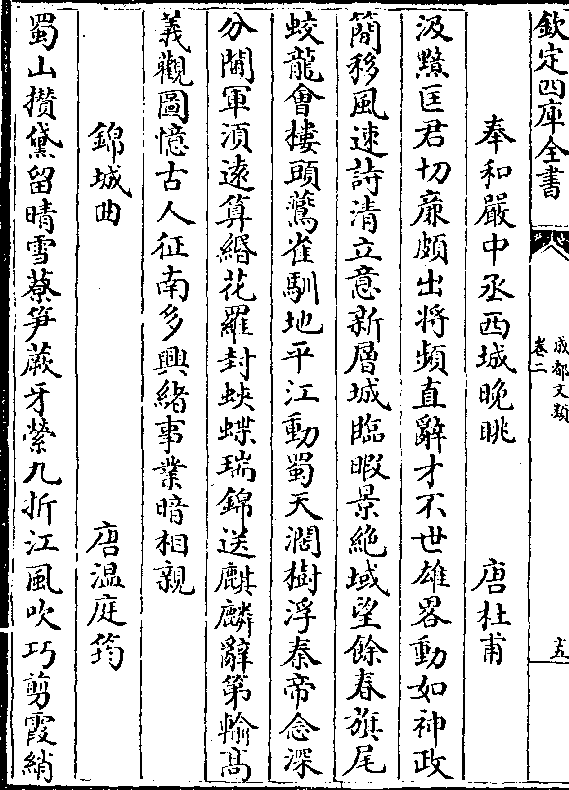 欽定四庫全書
成都文類
卷二
十五
奉和嚴中丞西城晚眺
唐杜甫
汲黯匡君切廉頗出将頻直辭才不世雄畧動如神政
簡移風速詩清立意新層城臨暇景絶域望餘春旗尾
蛟龍會樓頭鷰雀馴地平江動蜀天濶樹浮秦帝念深
分閫軍湏逺算緡花羅封蛺蝶瑞錦送麒麟辭第輸高
義觀圖憶古人征南多興緒事業暗相親
錦城曲
唐溫庭筠
蜀山攅黛留晴雪蔡笋蕨牙縈九折江風吹巧剪霞綃